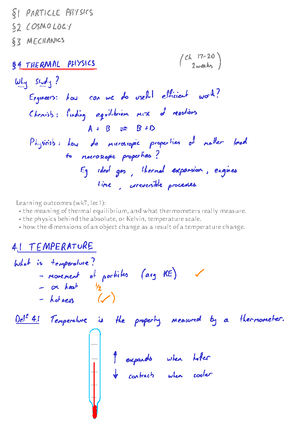 §1 PARTICLE PHYSICS
§2 COSMOLOGY
§3 MECHANICS
§4 THERMAL PHYSICS
(Ch 17-20)
2 weeks
Why Study?
Engineers: how can we do useful efficient work?
Chemists: finding equilibrium mix of reactions
A + B ⇌ B + D
Physicists: how do microscopic properties of matter lead
to macroscopic properties?
Eg ideal gas, thermal expansion, engines
time, irreversible processes
Learning outcomes (wk7, lec1):
• the meaning of thermal equilibrium, and what thermometers really measure.
• the physics behind the absolute, or Kelvin, temperature scale.
• how the dimensions of an object change as a result of a temperature change.
4.1 TEMPERATURE
What is temperature?
- movement of particles (avg KE) ✓
- or heat
- hotness (✓)
Defⁿ 4.1 Temperature is the property measured by a thermometer.
↑ expands when hotter
↓ contracts when cooler